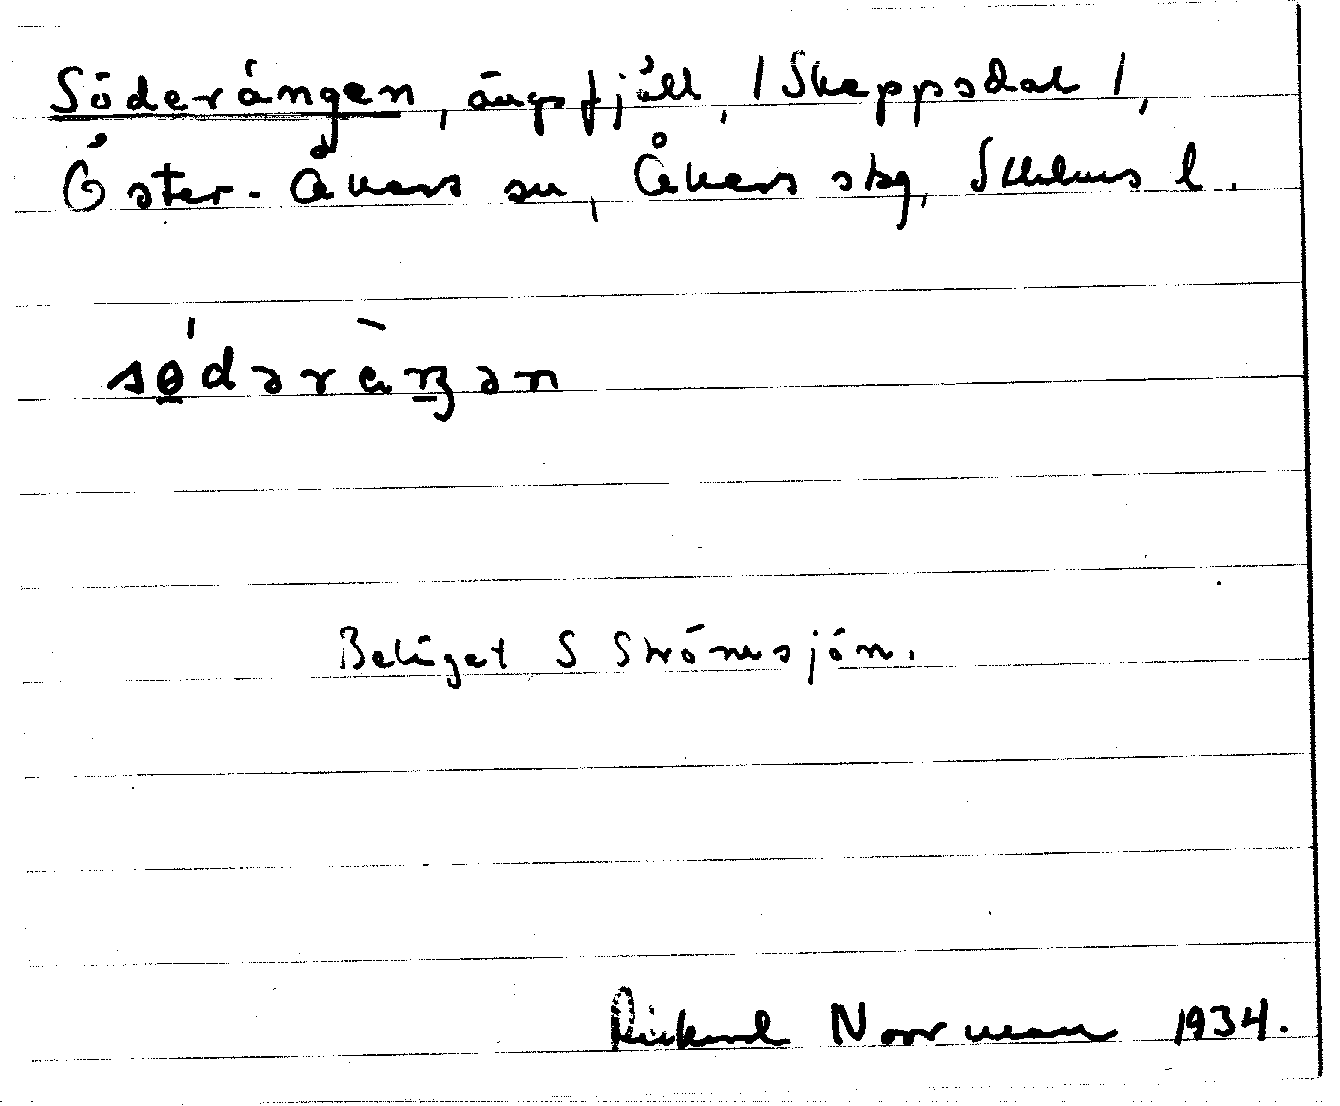 Söderängen, ängsfjäll, /Skeppsdal/,
Öster-Åkers sn, Åkers skg, Sthlms l.
södəräŋən
Beläget S Strömsjön.
Rickard Norrman 1934.